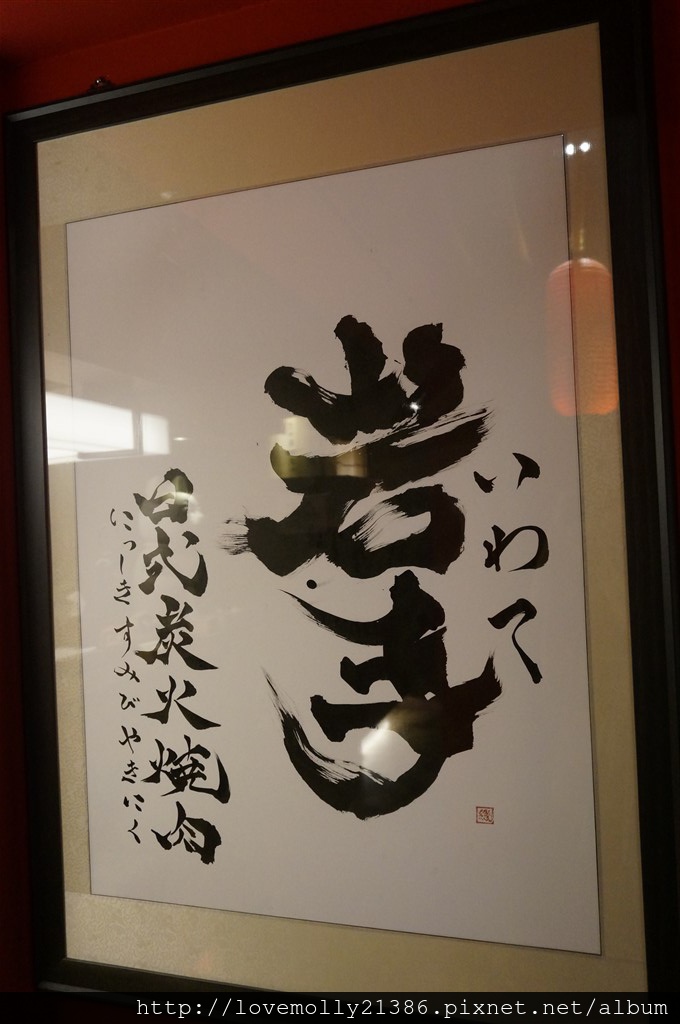 いわて
岩手
日式炭火燒肉
にっしきすみびやきにく
http://lovemolly21386.pixnet.net/album